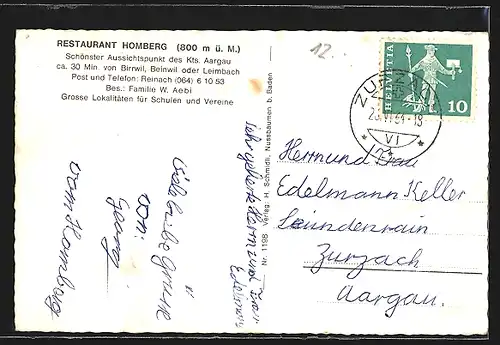 RESTAURANT HOMBERG (800 m ü. M.)
Schönster Aussichtspunkt des Kts. Aargau
ca. 30 Min. von Birrwil, Beinwil oder Leimbach
Post und Telefon: Reinach (064) 6 10 53
Bes.: Familie W. Aebi
Grosse Lokalitäten für Schulen und Vereine
12.-
HELVETIA
10
VI
Nr. 1198 Verlag: H. Schmidli, Nussbaumen b. Baden
Sehr geehrte Herrn und Frau
Edelmann
Viele liebe Grüsse
von:
Georg
vom Homberg
Herrn und Frau
Edelmann Keller
Zurzach
Aargau.